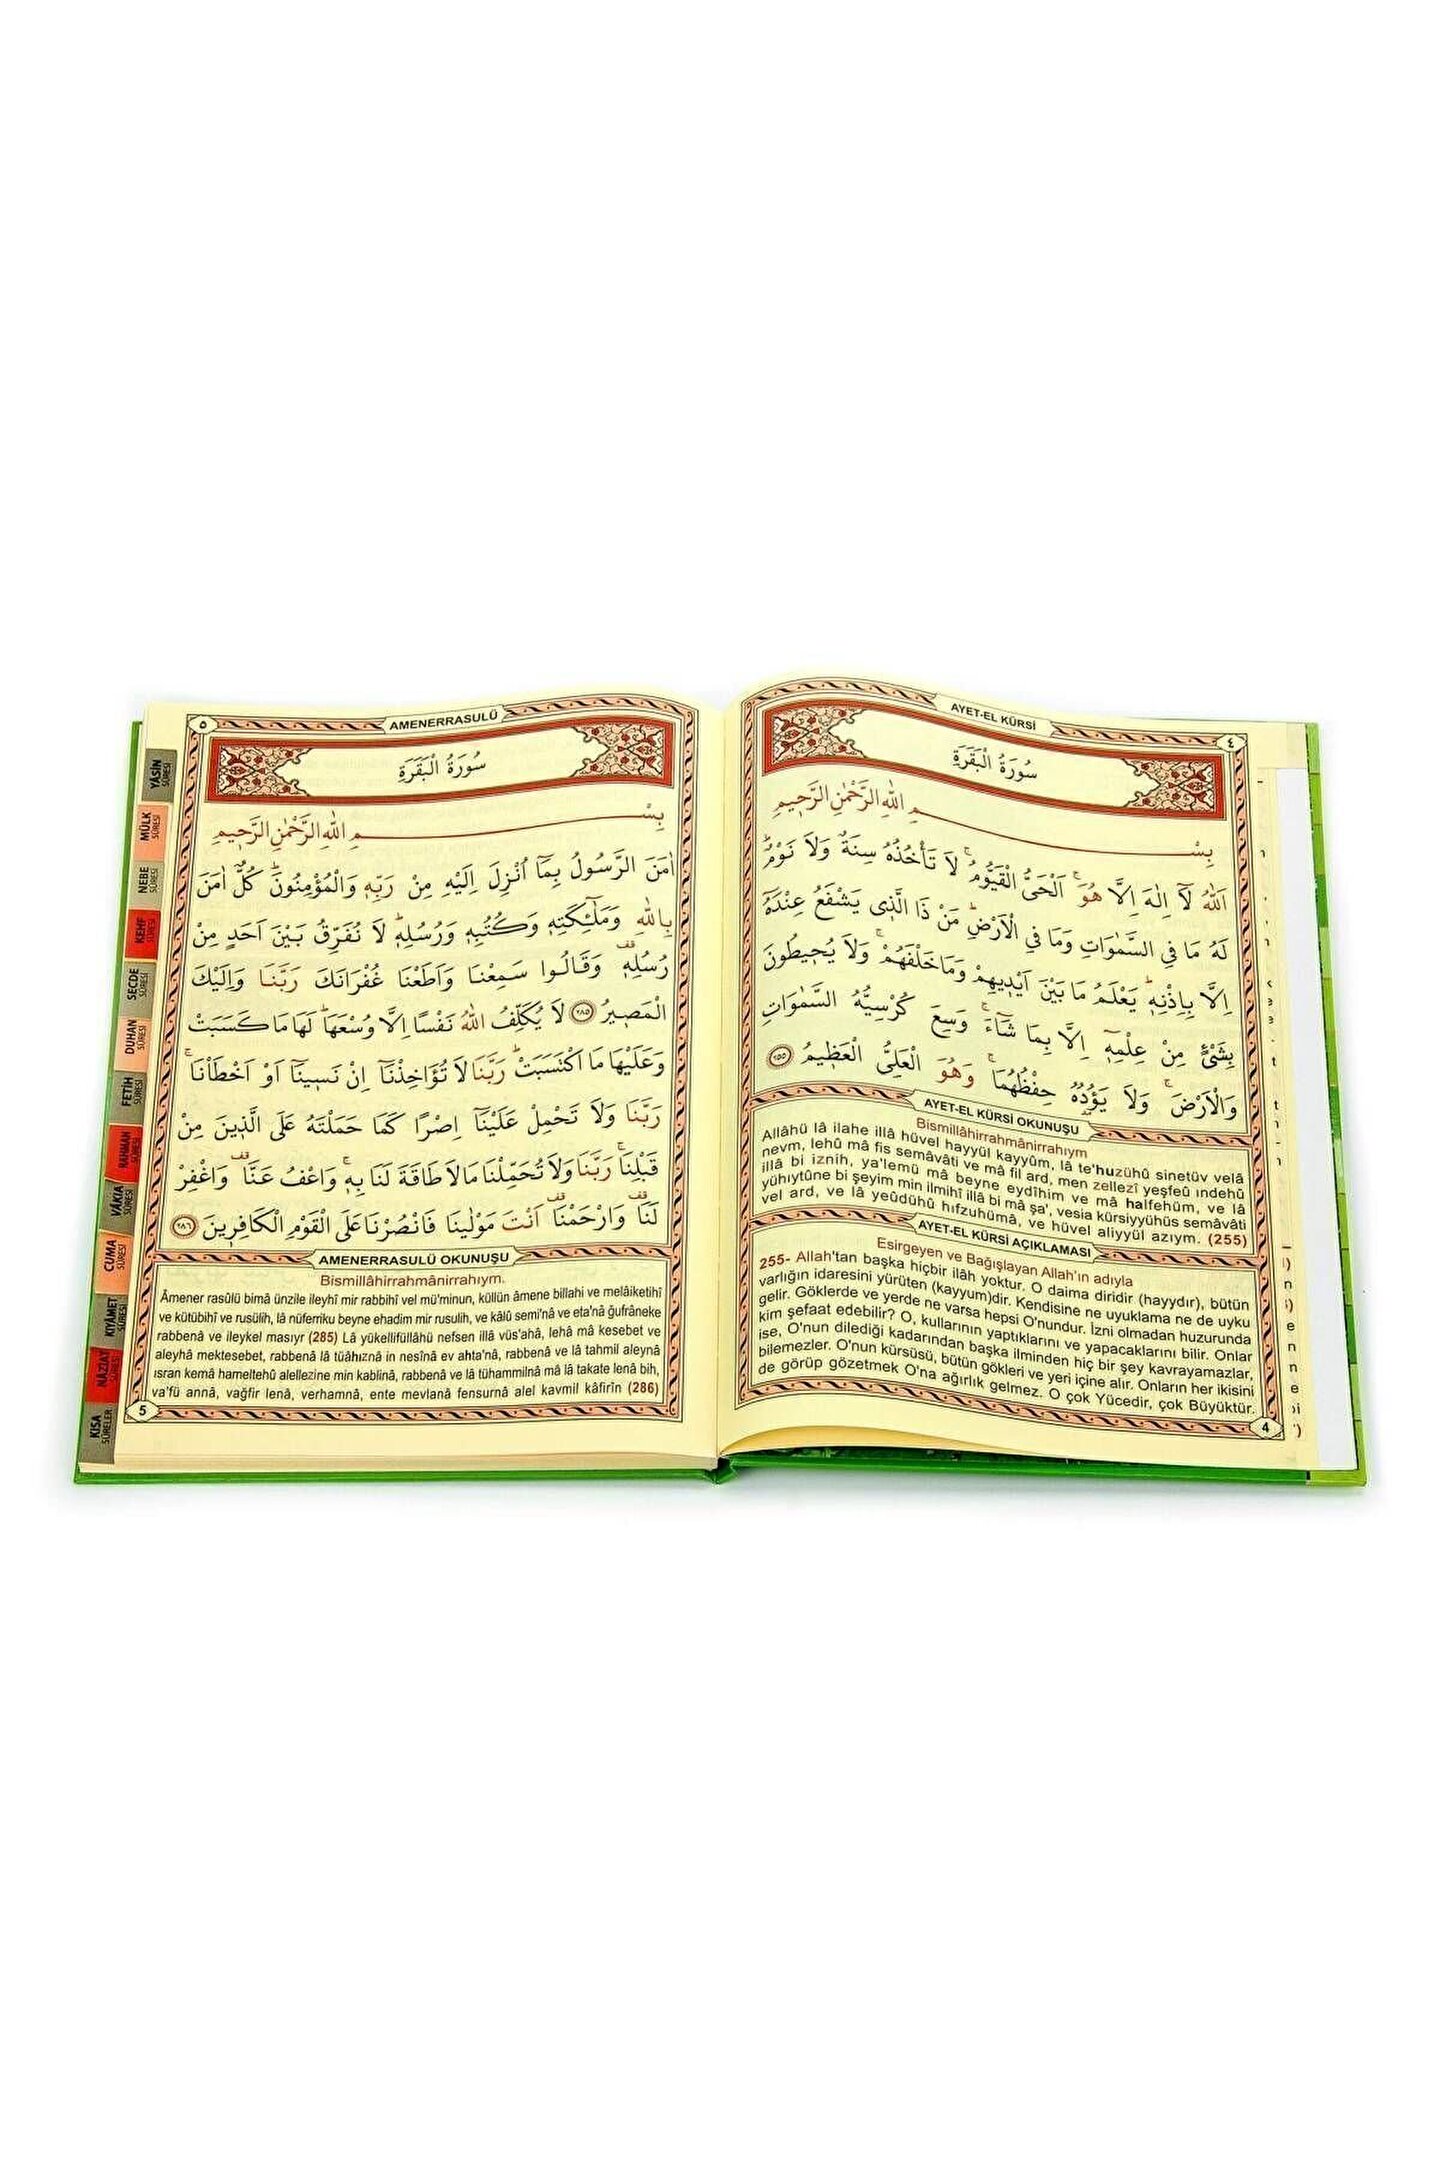 AYET-EL KÜRSİ
٤
سُورَةُ الْبَقَرَةِ
بِسْمِ اللهِ الرَّحْمٰنِ الرَّحِيمِ
اَللهُ لَٓا اِلٰهَ اِلَّا هُوَۚ اَلْحَيُّ الْقَيُّومُۚ لَا تَأْخُذُهُ سِنَةٌ وَلَا نَوْمٌۜ
لَهُ مَا فِي السَّمٰوَاتِ وَمَا فِي الْاَرْضِۜ مَنْ ذَا الَّذِي يَشْفَعُ عِنْدَهُٓ
اِلَّا بِاِذْنِهِۜ يَعْلَمُ مَا بَيْنَ اَيْدِيهِمْ وَمَا خَلْفَهُمْۚ وَلَا يُحِيطُونَ
بِشَيْءٍ مِنْ عِلْمِهِٓ اِلَّا بِمَا شَٓاءَۚ وَسِعَ كُرْسِيُّهُ السَّمٰوَاتِ
وَالْاَرْضَۚ وَلَا يَؤُ۫دُهُ حِفْظُهُمَاۚ وَهُوَ الْعَلِيُّ الْعَظِيمُ ٢٥٥
AYET-EL KÜRSİ OKUNUŞU
Bismillâhirrahmânirrahıym
Allâhü lâ ilahe illâ hüvel hayyül kayyûm, lâ te'huzühû sinetüv velâ
nevm, lehû mâ fis semâvâti ve mâ fil ard, men zellezî yeşfeû ındehû
illâ bi iznih, ya'lemü mâ beyne eydîhim ve mâ halfehüm, ve lâ
yühıytûne bi şeyim min ilmihî illâ bi mâ şa', vesia kürsiyyühüs semâvâti
vel ard, ve lâ yeûdühû hıfzuhümâ, ve hüvel aliyyül azıym. (255)
AYET-EL KÜRSİ AÇIKLAMASI
Esirgeyen ve Bağışlayan Allah'ın adıyla
255- Allah'tan başka hiçbir ilâh yoktur. O daima diridir (hayydır), bütün
varlığın idaresini yürüten (kayyum)dir. Kendisine ne uyuklama ne de uyku
gelir. Göklerde ve yerde ne varsa hepsi O'nundur. İzni olmadan huzurunda
kim şefaat edebilir? O, kullarının yaptıklarını ve yapacaklarını bilir. Onlar
ise, O'nun dilediği kadarından başka ilminden hiç bir şey kavrayamazlar,
bilemezler. O'nun kürsüsü, bütün gökleri ve yeri içine alır. Onların her ikisini
de görüp gözetmek O'na ağırlık gelmez. O çok Yücedir, çok Büyüktür.
4
٥
AMENERRASULÜ
سُورَةُ الْبَقَرَةِ
بِسْمِ اللهِ الرَّحْمٰنِ الرَّحِيمِ
اٰمَنَ الرَّسُولُ بِمَٓا اُنْزِلَ اِلَيْهِ مِنْ رَبِّهِ وَالْمُؤْمِنُونَۜ كُلٌّ اٰمَنَ
بِاللهِ وَمَلٰٓئِكَتِهِ وَكُتُبِهِ وَرُسُلِهِۜ لَا نُفَرِّقُ بَيْنَ اَحَدٍ مِنْ
رُسُلِهِ۠ وَقَالُوا سَمِعْنَا وَاَطَعْنَا غُفْرَانَكَ رَبَّنَا وَاِلَيْكَ
الْمَصِيرُ ٢٨٥ لَا يُكَلِّفُ اللهُ نَفْسًا اِلَّا وُسْعَهَاۜ لَهَا مَا كَسَبَتْ
وَعَلَيْهَا مَا اكْتَسَبَتْۜ رَبَّنَا لَا تُؤَاخِذْنَٓا اِنْ نَسِينَٓا اَوْ اَخْطَأْنَاۚ
رَبَّنَا وَلَا تَحْمِلْ عَلَيْنَٓا اِصْرًا كَمَا حَمَلْتَهُ عَلَى الَّذِينَ مِنْ
قَبْلِنَاۚ رَبَّنَا وَلَا تُحَمِّلْنَا مَا لَا طَاقَةَ لَنَا بِهِۚ وَاعْفُ عَنَّا۠ وَاغْفِرْ
لَنَا۠ وَارْحَمْنَا۠ اَنْتَ مَوْلٰينَا فَانْصُرْنَا عَلَى الْقَوْمِ الْكَافِرِينَ ٢٨٦
AMENERRASULÜ OKUNUŞU
Bismillâhirrahmânirrahıym.
Âmener rasûlü bimâ ünzile ileyhî mir rabbihî vel mü'minun, küllün âmene billahi ve melâiketihî
ve kütübihî ve rusülih, lâ nüferriku beyne ehadim mir rusulih, ve kâlû semi'nâ ve eta'nâ ğufrâneke
rabbenâ ve ileykel masıyr (285) Lâ yükellifüllâhü nefsen illâ vüs'ahâ, lehâ mâ kesebet ve
aleyhâ mektesebet, rabbenâ lâ tüâhıznâ in nesînâ ev ahta'nâ, rabbenâ ve lâ tahmil aleynâ
ısran kemâ hameltehû alellezine min kablinâ, rabbenâ ve lâ tühammilnâ mâ lâ takate lenâ bih,
va'fü annâ, vağfir lenâ, verhamnâ, ente mevlanâ fensurnâ alel kavmil kâfirîn (286)
5
YÂSİN SÛRESİ
MÜLK SÛRESİ
NEBE SÛRESİ
KEHF SÛRESİ
SECDE SÛRESİ
DUHAN SÛRESİ
FETİH SÛRESİ
RAHMAN SÛRESİ
VÂKIA SÛRESİ
CUMA SÛRESİ
KIYÂMET SÛRESİ
NAZİAT SÛRESİ
KISA SÛRELER